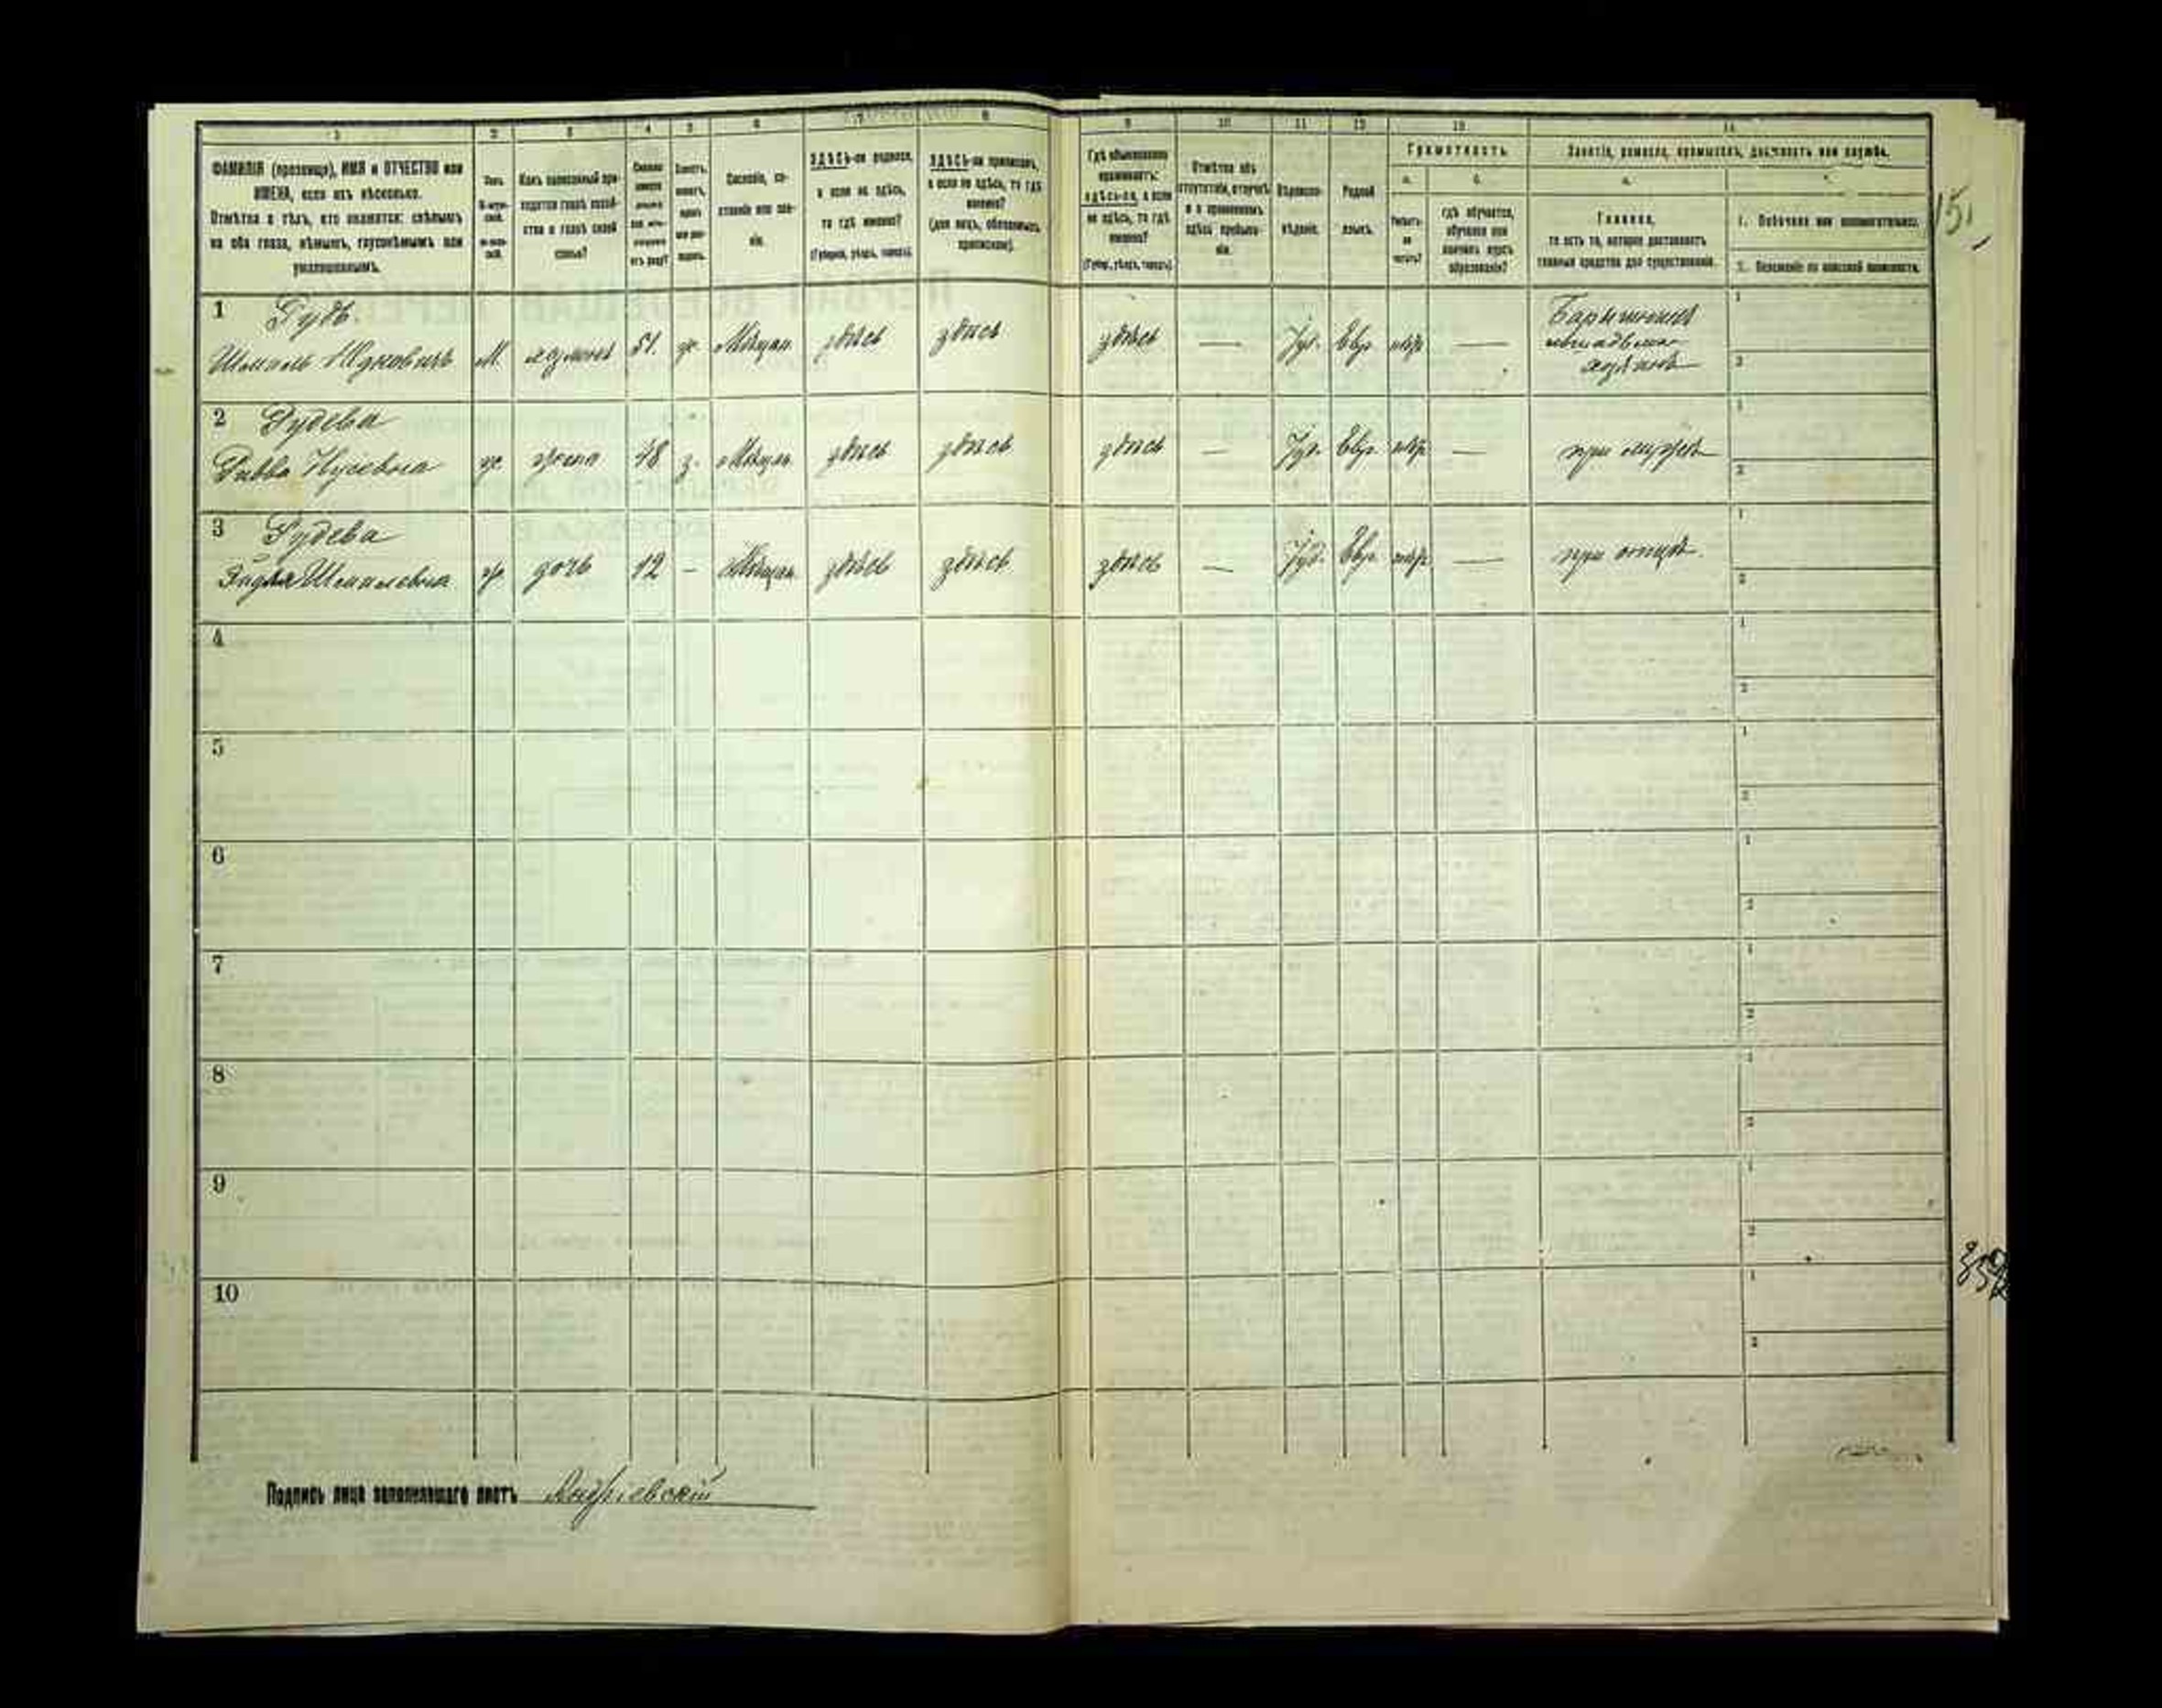 1 2 3 4 5 6 7 8 9 10 11 12 13 14
ФАМИЛІЯ (прозвище), ИМЯ и ОТЧЕСТВО или
ИМЕНА, если ихъ нѣсколько.
Отмѣтка о тѣхъ, кто окажется: слѣпымъ
на оба глаза, нѣмымъ, глухонѣмымъ или
умалишеннымъ.
Полъ.
Какъ записанный при-
ходится главѣ хозяй-
ства и главѣ своей
семьи?
Сословіе, со-
стояніе или зва-
ніе.
ЗДѢСЬ-ли родился,
а если не здѣсь,
то гдѣ именно?
(Губернія, уѣздъ, городъ).
ЗДѢСЬ-ли приписанъ,
а если не здѣсь, то гдѣ
именно?
(для лицъ, обязанныхъ
припискою).
Гдѣ обыкновенно
проживаетъ:
здѣсь-ли, а если
не здѣсь, то гдѣ
именно?
(Губер., уѣздъ, городъ).
Отмѣтка объ
отсутствіи, отлучкѣ
и о временномъ
здѣсь пребыва-
ніи.
Вѣроиспо-
вѣданіе.
Родной
языкъ.
Грамотность.
а. б.
Умѣетъ-
ли
читать?
гдѣ обучается,
обучался или
кончилъ курсъ
образованія?
Занятіе, ремесло, промыселъ, должность или служба.
а.
Главное,
то есть то, которое доставляетъ
главныя средства для существованія.
1. Побочное или вспомогательное.
2. Положеніе по воинской повинности.
15
1 Гудь
Шмиль Юдковичъ М. хозяинъ 51. ж. Мѣщан. здѣсь здѣсь здѣсь — Іуд. Евр. — хозяинъ
1
2
2 Гудева
Ривва Нусевна ж. жена 48 з. Мѣщан. здѣсь здѣсь здѣсь — Іуд. Евр. — при мужѣ
1
2
3 Гудева
Эйдля Шмилевна ж. дочь 12 — Мѣщан. здѣсь здѣсь здѣсь — Іуд. Евр. — при отцѣ.
1
2
4 1
2
5 1
2
6 1
2
7 1
2
8 1
2
9 1
2
10 1
2
Подпись лица заполнявшаго листъ Андріевскій